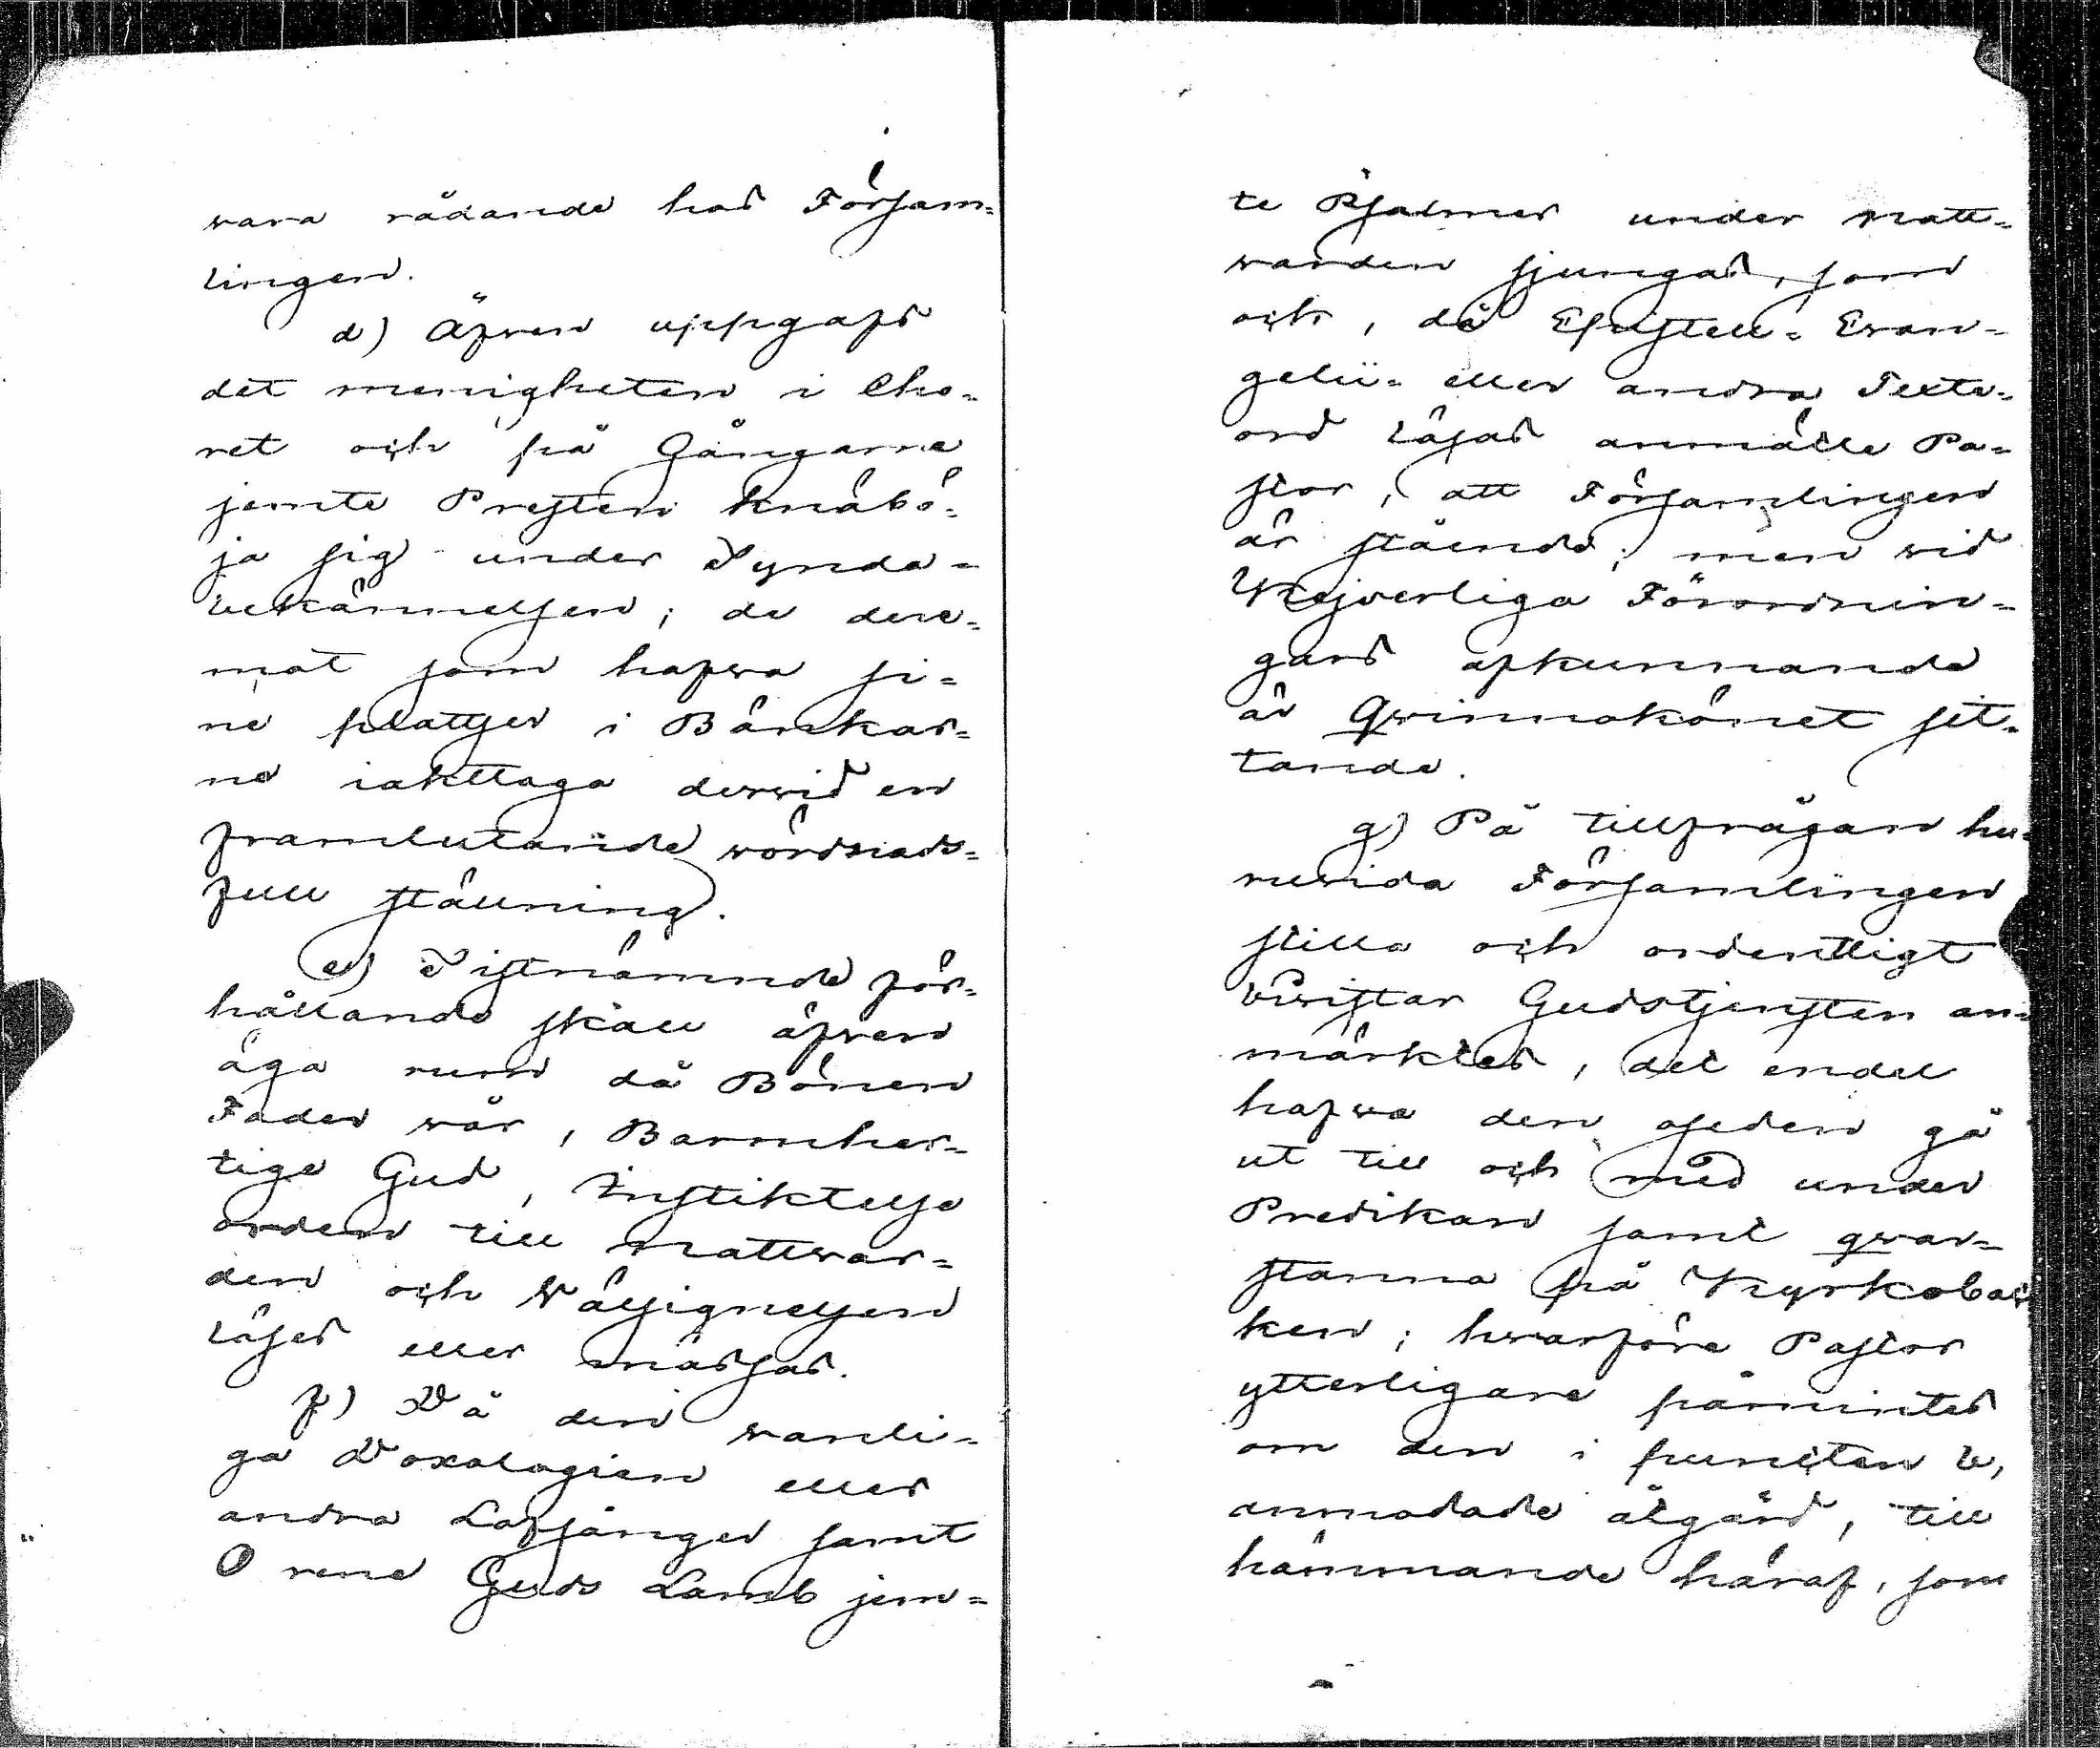 wara rådande hos Försam=
lingen.
d) Äfwen uppgafs
det menigheten i Cho=
ret och på Gångarne
jemte Presten knäbö=
ja sig under Synda=
bekännelsen; de dere=
mot som hafwa si=
ne plattser i Bänkar=
ne iakttaga derwid en
framlutande wördnads=
full ställning.
e) Sistnämnde för=
hållande skall äfwen
äga rum då Bönen
Fader wår, Barmher=
tige Gud, Instiktelse
orden till nattwar=
den och Wälsignelsen
läses eller mässas.
f) Då den wanli=
ga Doxologien eller
andra Lofsånger samt
O rene Guds Lamb jem=
te Psalmer under natt=
warden sjungas, som
och, då Epistell= Evan=
gelii= eller andra Texte=
ord läsas anmälte Pa=
stor, att Församlingen
är stående; men wid
Kejserliga Förordnin=
gars afkunnande
är Qwinnokönet sit=
tande.
g) På tillfrågan hu=
ruwida Församlingen
stilla och ordentligt
biwistar Gudstjensten an=
märktes, det endel
hafwa den oseden gå
ut till och med under
Predikan samt qwar=
stanna på Kyrkobac
ken; hwarföre Pastor
ytterligare påmintes
om den i puncten b,
anmodade åtgärd, till
hämmande häraf, som